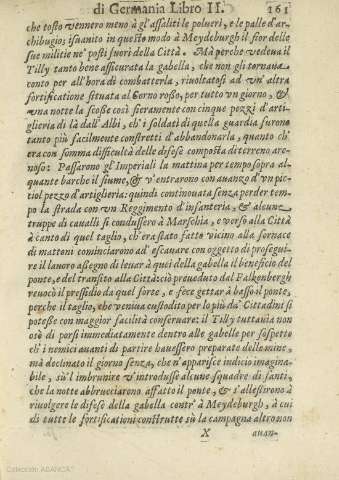 di Germania Libro II. 161
che tosto vennero meno à gl'assaliti le polueri, e le palle d'ar-
chibugio; isuanito in questo modo à Meydeburgh il fior delle
sue militie ne' posti fuori della Città. Mà perche vedeua il
Tilly tanto bene assicurata la gabella, che non gli tornaua
conto per all'hora di combatterla, riuoltatosi ad vn'altra
fortificatione situata al Corno rosso, per tutto vn giorno, &
vna notte la scosse così fieramente con cinque pezzi d'arti-
glieria di là dall'Albi, ch'i soldati di quella guardia furono
tanto più facilmente constretti d'abbandonarla, quanto ch'
era con somma difficultà delle difese composta di terreno are-
noso: Passarono gl'Imperiali la mattina per tempo sopra al-
quante barche il fiume, & v'entrarono con auanzo d'vn pic-
ciol pezzo d'artiglieria: quindi continouata senza perder tem-
po la strada con vn Reggimento d'infanteria, & alcune
truppe di caualli si condussero à Marschia, e verso alla Città
à canto di quel taglio, ch'era stato fatto vicino alla fornace
di mattoni cominciarono ad escauare con oggetto di prosegui-
re il lauoro a segno di leuar à quei della gabella il beneficio del
ponte, e del transito alla Città: ciò preueduto dal Falkenbergh
reuocò il pressidio da quel forte, e fece gettar à basso il ponte,
perche il taglio, che veniua custodito per lo più da' Cittadini si
potesse con maggior facilità conseruare: il Tilly tuttauia non
osò di porsi immediatamente dentro alle gabelle per sospetto
ch'i nemici auanti di partire hauessero preparate delle mine,
mà declinato il giorno senza, che n'apparisce indicio imagina-
bile, sù l'imbrunire v'introdusse alcune squadre di fanti,
che la notte abbrucciarono affatto il ponte, & s'allestirono à
riuolgere le difese della gabella contr'à Meydeburgh, à cui
di tutte le fortificationi construtte sù la campagna altro non
X auan-
Colección ABANCA